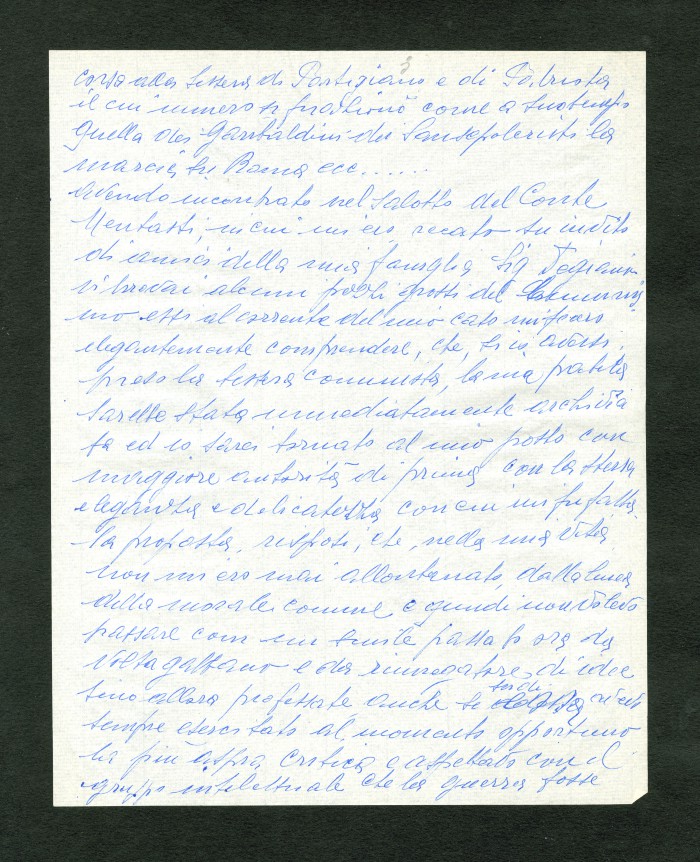 3
corsa alla tessera di Partigiano e di Patriota
il cui numero si frazionò come a suo tempo
quella dei Garibaldini dei Sansepolcristi la
marcia su Roma ecc......
avendo incontrato nel salotto del Conte
Mentasti, in cui mi ero recato su invito
di amici della mia famiglia Sig.
vi trovai alcuni pezzi grossi del Comunis
mo essi al corrente del mio caso mi fecero
elegantemente comprendere, che, se io avessi
preso la tessera comunista, la mia pratica
sarebbe stata immediatamente archivia
ta ed io sarei tornato al mio posto con
maggiore autorità di prima con la stessa
eleganza e delicatezza con cui mi fu fatta
la proposta, risposi, che, nella mia vita
non mi ero mai allontanato, dalla linea
della morale comune e quindi non volevo
passare con un simile passo ora da
voltagabbana e da rinnegatore di idee
sino allora professate anche se su di
sempre esercitato al momento opportuno
la più aspra critica e aspettato con il
gruppo intellettuale che la guerra fosse